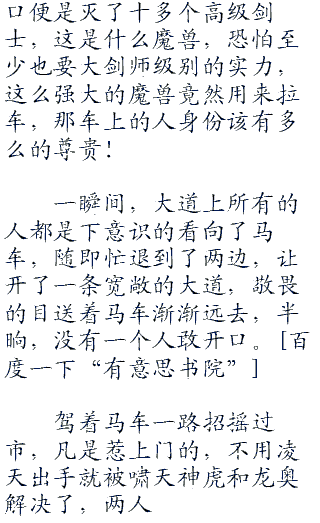 口便是灭了十多个高级剑
士，这是什么魔兽，恐怕至
少也要大剑师级别的实力，
这么强大的魔兽竟然用来拉
车，那车上的人身份该有多
么的尊贵！
一瞬间，大道上所有的
人都是下意识的看向了马
车，随即忙退到了两边，让
开了一条宽敞的大道，敬畏
的目送着马车渐渐远去，半
晌，没有一个人敢开口。[百
度一下“有意思书院”]
驾着马车一路招摇过
市，凡是惹上门的，不用凌
天出手就被啸天神虎和龙奥
解决了，两人